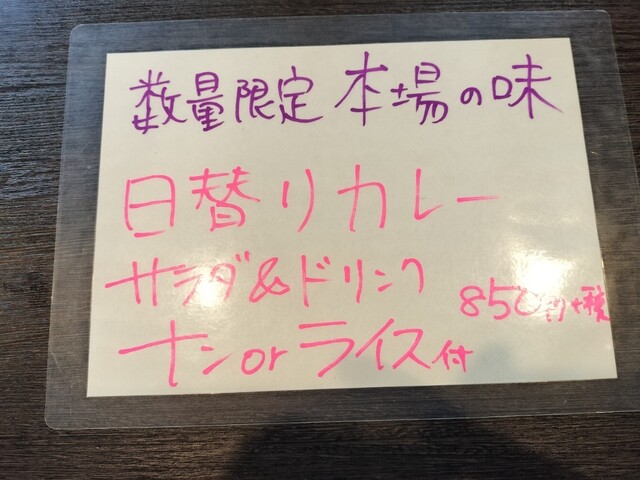 数量限定 本場の味
日替りカレー
サラダ&ドリンク
850円+税
ナンorライス付